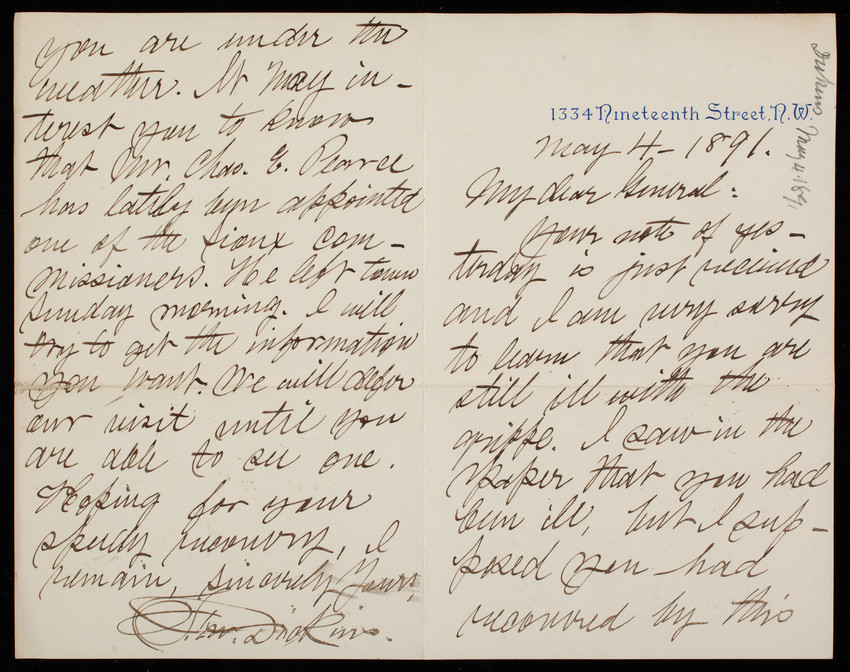 1334 Nineteenth Street, N.W.
May 4 - 1891.
My dear General:
Your note of yes-
terday is just received
and I am very sorry
to learn that you are
still ill with the
grippe. I saw in the
paper that you had
been ill, but I sup-
posed you had
recovered by this
you are under the
weather. It may in-
terest you to know
that Mr. Chas. E. Pearce
has lately been appointed
one of the Sioux com-
missioners. He left town
Sunday morning. I will
try to get the information
you want. We will defer
our visit until you
are able to see one.
Hoping for your
speedy recovery, I
remain, sincerely Yours,
Dickins.
Dickins May 4-1891